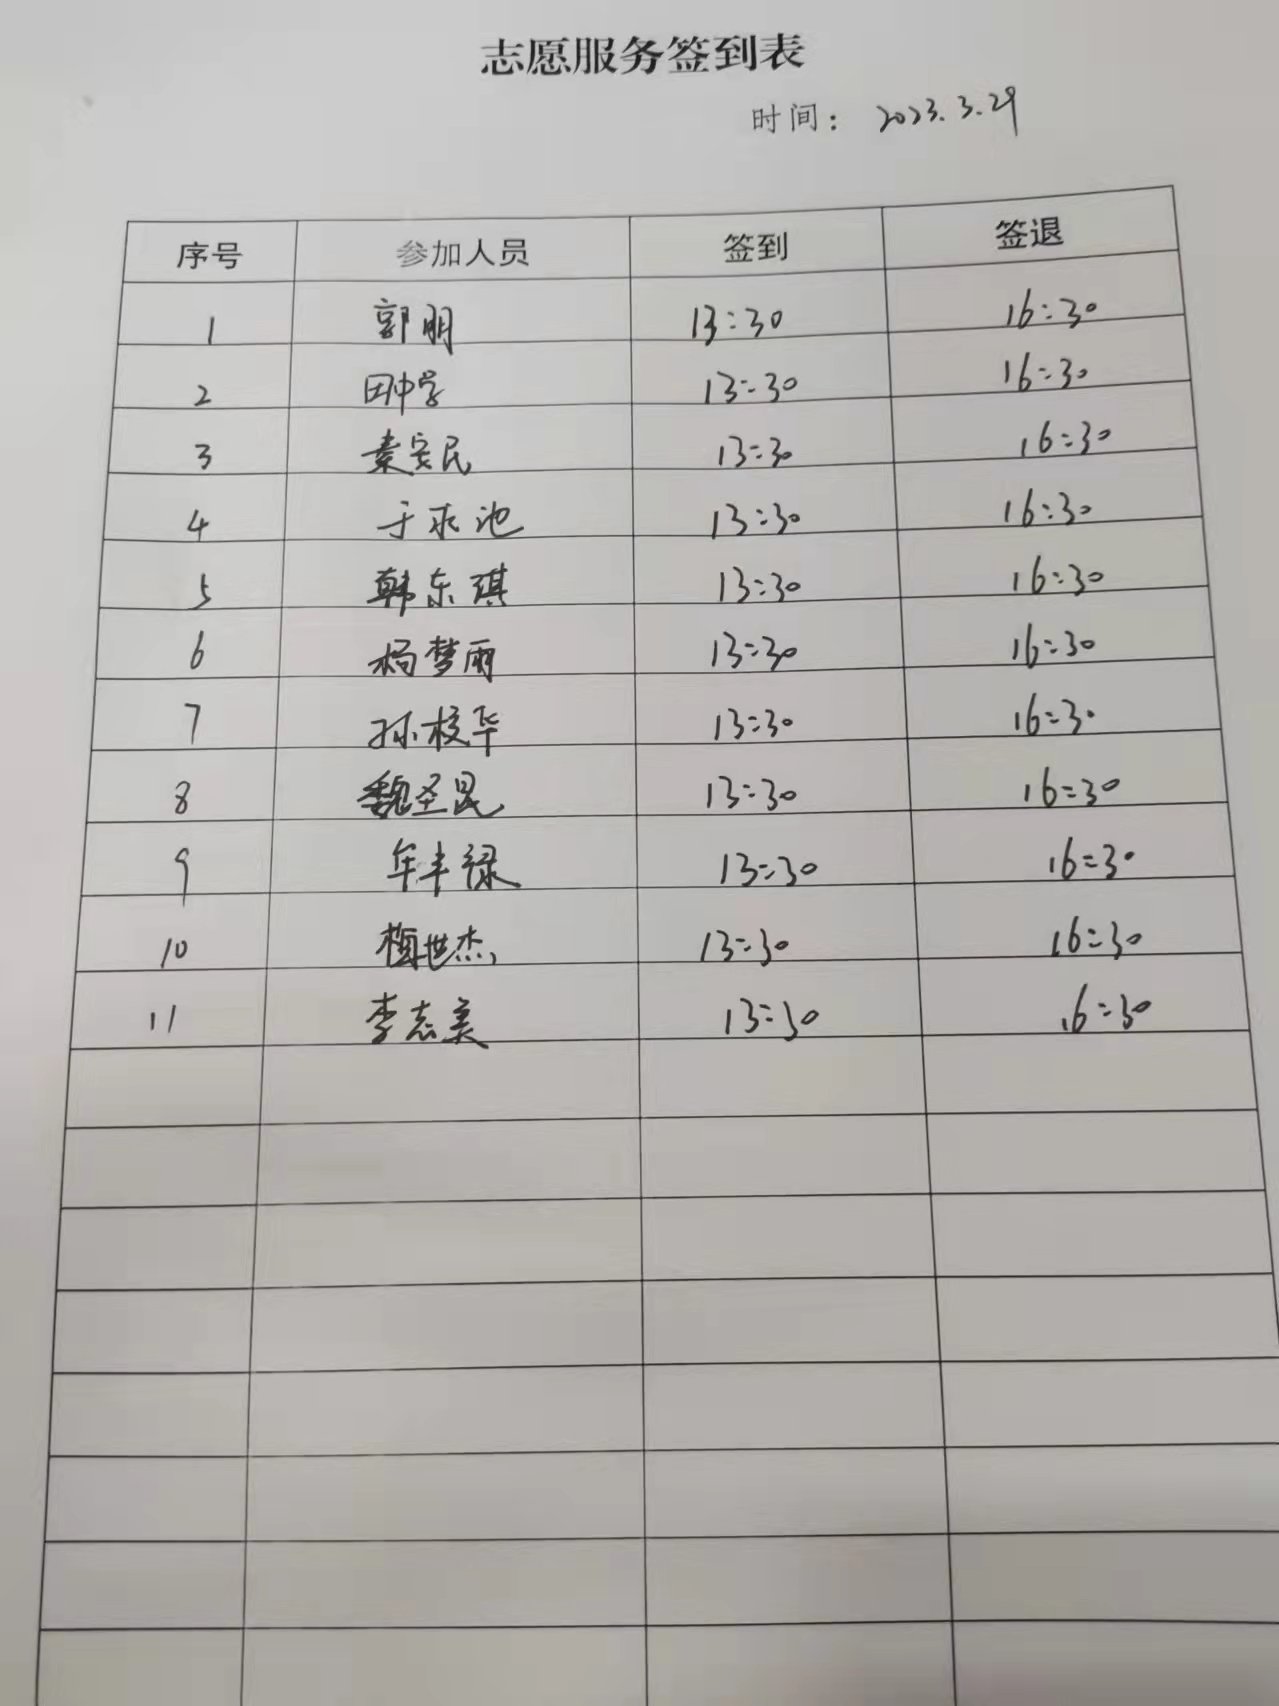 志愿服务签到表
时间： 2023.3.29
序号 参加人员 签到 签退
1 郭明 13:30 16:30
2 田中学 13:30 16:30
3 秦安民 13:30 16:30
4 于永池 13:30 16:30
5 韩东琪 13:30 16:30
6 杨梦雨 13:30 16:30
7 孙校华 13:30 16:30
8 魏圣昆 13:30 16:30
9 牟丰禄 13:30 16:30
10 梅世杰 13:30 16:30
11 李志美 13:30 16:30